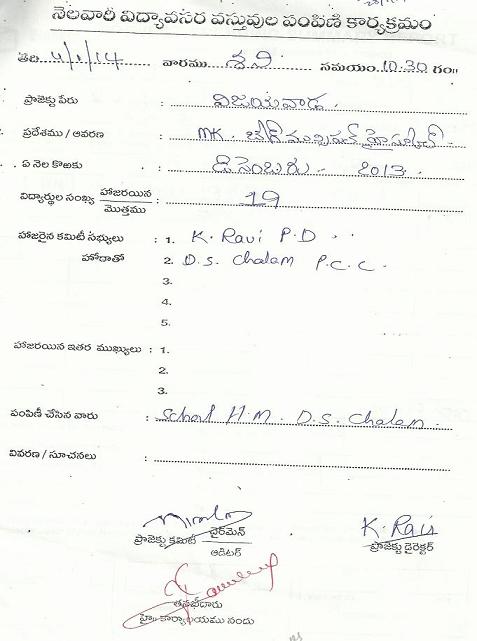 నెలవారీ విద్యావసర వస్తువుల పంపిణీ కార్యక్రమం
తేది 4/1/14 వారము శని సమయం 10.30 గం॥
ప్రాజెక్టు పేరు : విజయవాడ.
ప్రదేశము / ఆవరణ : MK. మున్సిపల్ హైస్కూల్.
ఏ నెల కొఱకు : డిసెంబరు - 2013.
విద్యార్థుల సంఖ్య హాజరయిన / మొత్తము : 19
హాజరైన కమిటీ సభ్యులు : 1. K. Ravi P.D
హోదాతో 2. D.S. Chalam P.C.C.
3.
4.
5.
హాజరయిన ఇతర ముఖ్యులు : 1.
2.
3.
పంపిణీ చేసిన వారు : School H.M. D.S. Chalam.
వివరణ / సూచనలు :
ప్రాజెక్టు కమిటీ చైర్‌మెన్
ఆడిటర్
K. Ravi
ప్రాజెక్టు డైరెక్టర్
తనిఖీదారు
హై. కార్యాలయము నందు